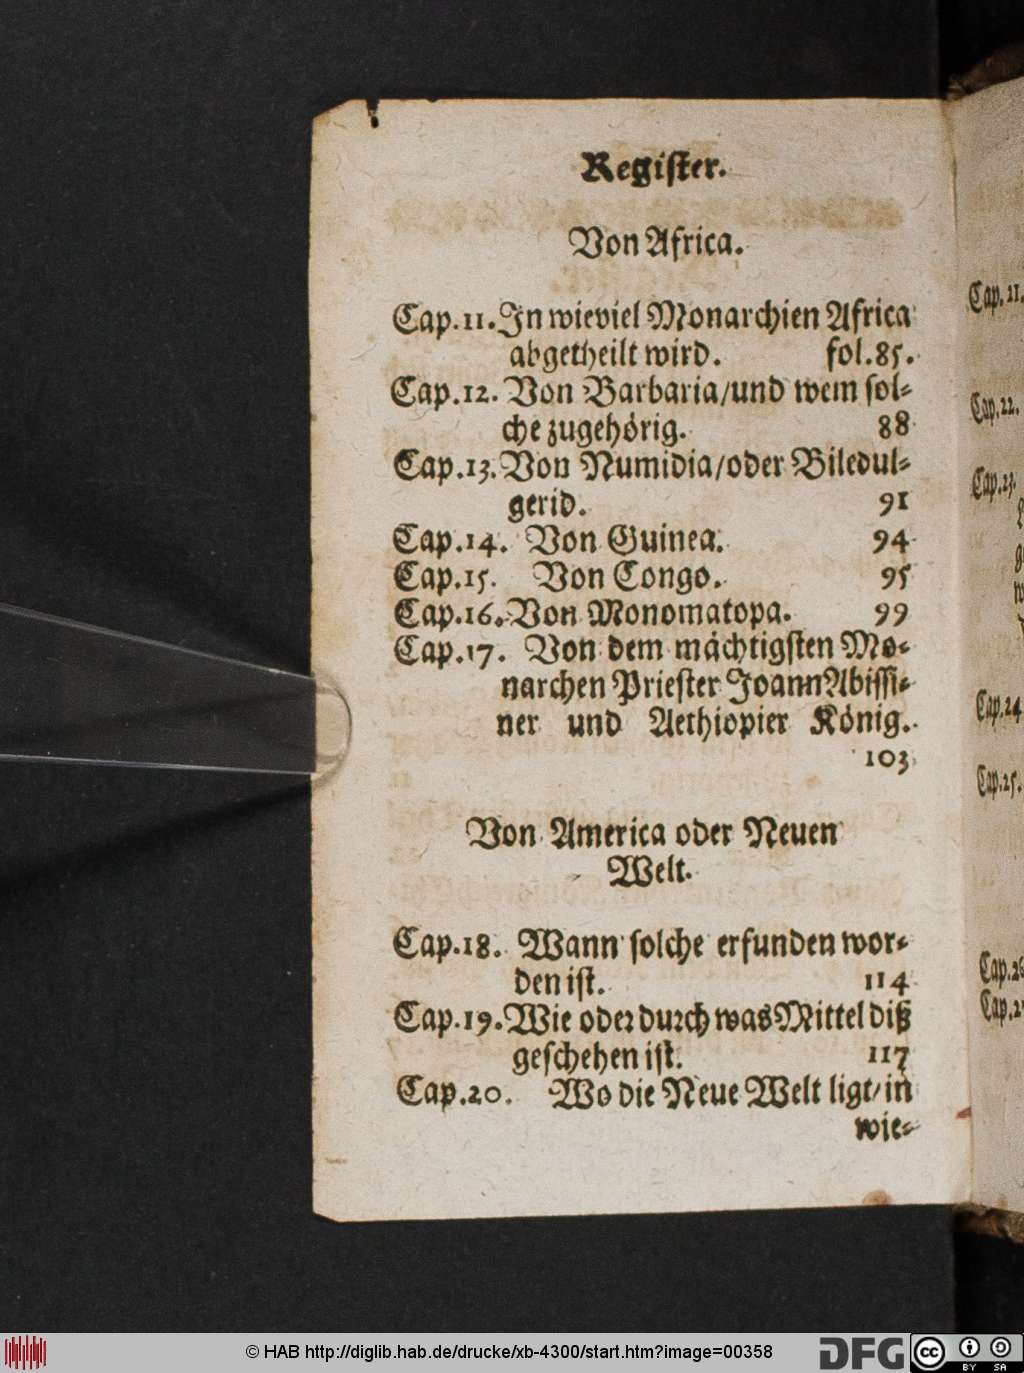 Register.
Von Africa.
Cap.11. In wieviel Monarchien Africa
abgetheilt wird. fol.85.
Cap.12. Von Barbaria/und wem sol⸗
che zugehörig. 88
Cap.13. Von Numidia/oder Biledul⸗
gerid. 91
Cap.14. Von Guinea. 94
Cap.15. Von Congo. 95
Cap.16. Von Monomatopa. 99
Cap.17. Von dem mächtigsten Mo⸗
narchen Priester Joann Abissi⸗
ner und Aethiopier König.
103
Von America oder Neuen
Welt.
Cap.18. Wann solche erfunden wor⸗
den ist. 114
Cap.19. Wie oder durch was Mittel diß
geschehen ist. 117
Cap.20. Wo die Neue Welt ligt/in
wie⸗
Cap.21.
Cap.22.
Cap.23.
Cap.24
Cap.25.
© HAB http://diglib.hab.de/drucke/xb-4300/start.htm?image=00358
DFG
cc
BY SA